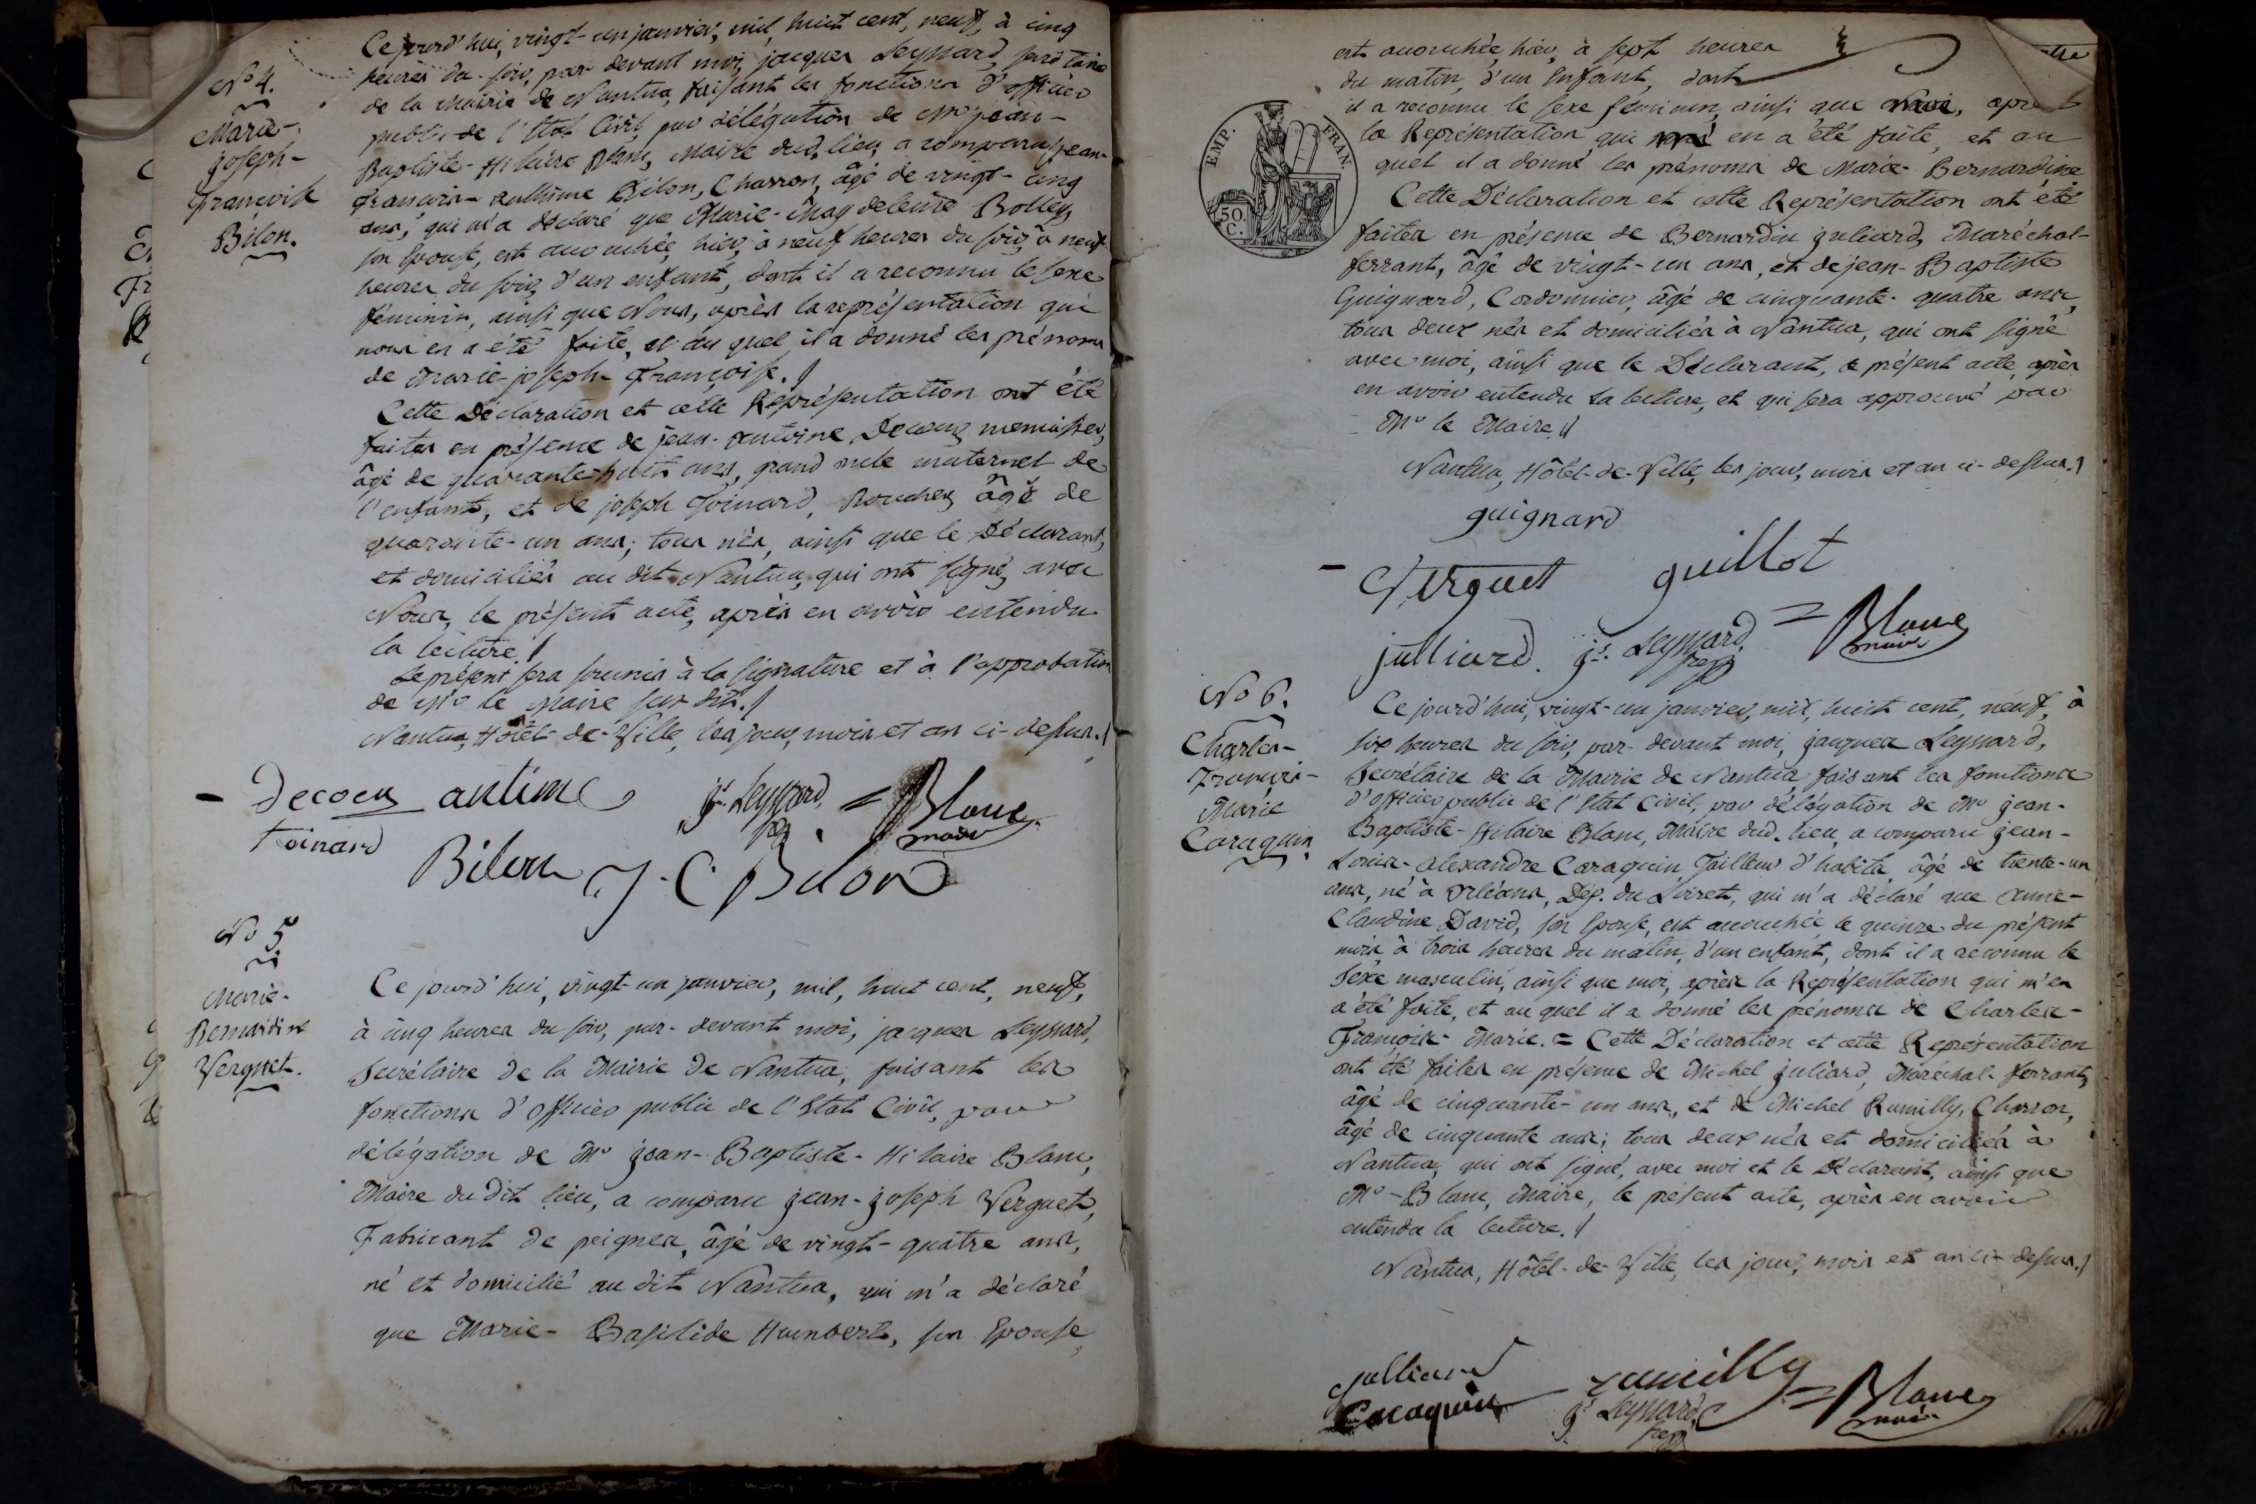 N° 4.
Marie-
joseph-
françoise
Bilon.
Ce jourd'hui, vingt-un janvier, mil, huit cent, neuf, à cinq
heures du soir, par-devant moi, jacques Leyssard, secrétaire
de la Mairie de Nantua, faisant les fonctions d'officier
public de l'Etat Civil, par délégation de Mr jean-
Baptiste-Hilaire Blanc, Maire dud. lieu, a comparu jean-
françois-anthime Bilon, Charron, âgé de vingt-cinq
ans, qui m'a déclaré que Marie-Magdeleine Bolley,
son Epouse, est accouchée, hier, à neuf heures du soir, à neuf
heures du soir, d'un enfant, dont il a reconnu le sexe
féminin, ainsi que Nous, après la représentation qui
nous en a été faite, et au quel il a donné les prénoms
de Marie-joseph-françoise.
Cette Déclaration et cette Représentation ont été
faites en présence de jean-antoine Decoeur, menuisier,
âgé de quarante-huit ans, grand oncle maternel de
l'enfant, et de joseph Goinard, Boucher, âgé de
quarante-un ans; tous nés, ainsi que le Déclarant,
et domiciliés au dit Nantua, qui ont signé, avec
Nous, le présent acte, après en avoir entendu
la lecture.
Le présent sera soumis à la signature et à l'approbation
de Mr le Maire sus dit.
Nantua, Hôtel-de-Ville, les jour, mois et an ci-dessus.
antime js. Leyssard, = Blanc
maire
Bilon J. C. Bilon
N° 5
Marie-
Bernardine
Verguet.
Ce jourd'hui, vingt-un janvier, mil, huit cent, neuf,
à cinq heures du soir, par-devant moi, jacques Leyssard,
Secrétaire de la Mairie de Nantua, faisant les
fonctions d'officier public de l'Etat Civil, par
délégation de Mr jean-Baptiste-Hilaire Blanc,
Maire du dit lieu, a comparu jean-joseph Verguet,
Fabricant de peignes, âgé de vingt-quatre ans,
né et domicilié au dit Nantua, qui m'a déclaré
que Marie-Basilide Humbert, son Epouse,
est accouchée, hier, à sept heures
du matin, d'un Enfant, dont
il a reconnu le sexe féminin, ainsi que moi, après
la Représentation qui en a été faite, et au
quel il a donné les prénoms de Marie-Bernardine
Cette Déclaration et cette Représentation ont été
faites en présence de Bernardin juliard, Maréchal-
ferrant, âgé de vingt-un ans, et de jean-Baptiste
Guignard, Cordonnier, âgé de cinquante-quatre ans,
tous deux nés et domiciliés à Nantua, qui ont signé
avec moi, ainsi que le Déclarant, ce présent acte, après
en avoir entendu la lecture, et qui sera approuvé par
Mr le Maire.
Nantua, Hôtel-de-Ville, les jour, mois et an ci-dessus.
EMP. FRAN.
50.
C.
guignard
Verguet guillot
julliard. js. Leyssard, = Blanc
maire
N° 6.
Charles-
François-
Marie
Caraquin.
Ce jourd'hui, vingt-un janvier, mil, huit cent, neuf, à
six heures du soir, par-devant moi, jacques Leyssard,
Secrétaire de la Mairie de Nantua faisant les fonctions
d'officier public de l'Etat Civil, par délégation de Mr jean-
Baptiste-Hilaire Blanc, Maire dud. lieu, a comparu jean-
Louis-Alexandre Caraquin, Tailleur d'habits, âgé de trente-un
ans, né à Orléans, Dép. du Loiret, qui m'a déclaré que Anne-
Claudine David, son Epouse, est accouchée le quinze du présent
mois, à trois heures du matin, d'un enfant, dont il a reconnu le
Sexe masculin, ainsi que moi, après la Représentation qui m'en
a été faite, et au quel il a donné les prénoms de Charles-
François-Marie. = Cette Déclaration et cette Représentation
ont été faites en présence de Michel juliard, Maréchal-ferrant,
âgé de cinquante-un ans, et de Michel Rumilly, Charron,
âgé de cinquante ans; tous deux nés et domiciliés à
Nantua, qui ont signé, avec moi et le Déclarant, ainsi que
Mr-Blanc, Maire, le présent acte, après en avoir
entendu la lecture.
Nantua, Hôtel-de-Ville, les jour, mois et an ci-dessus.
Julliard rumilly = Blanc
maire
Caraquin js Leyssard,